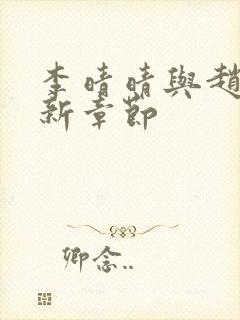 李晴晴與趙
新章節
卿念..